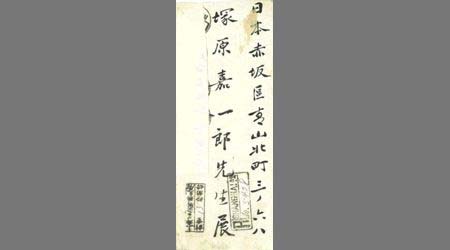 日本赤坂区青山北町三ノ六八
塚原嘉一郎先生展